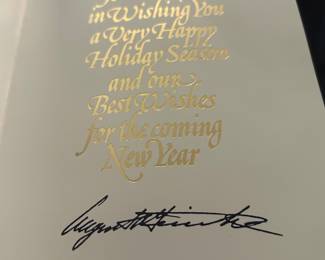 in Wishing You
a Very Happy
Holiday Season
and our
Best Wishes
for the coming
New Year